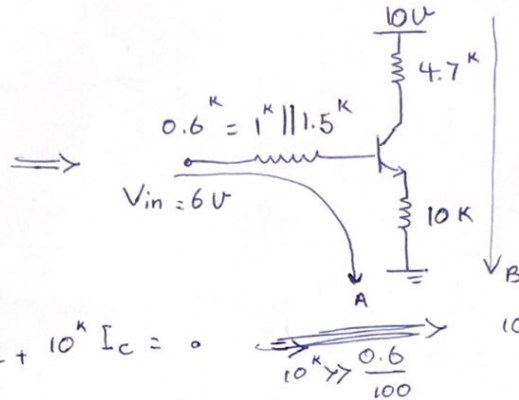 10v
4.7 K
0.6 K = 1 K || 1.5 K
⇒
Vin = 6v
10 K
A
B
+ 10 K Ic = 0
10 K >> 0.6 / 100
10